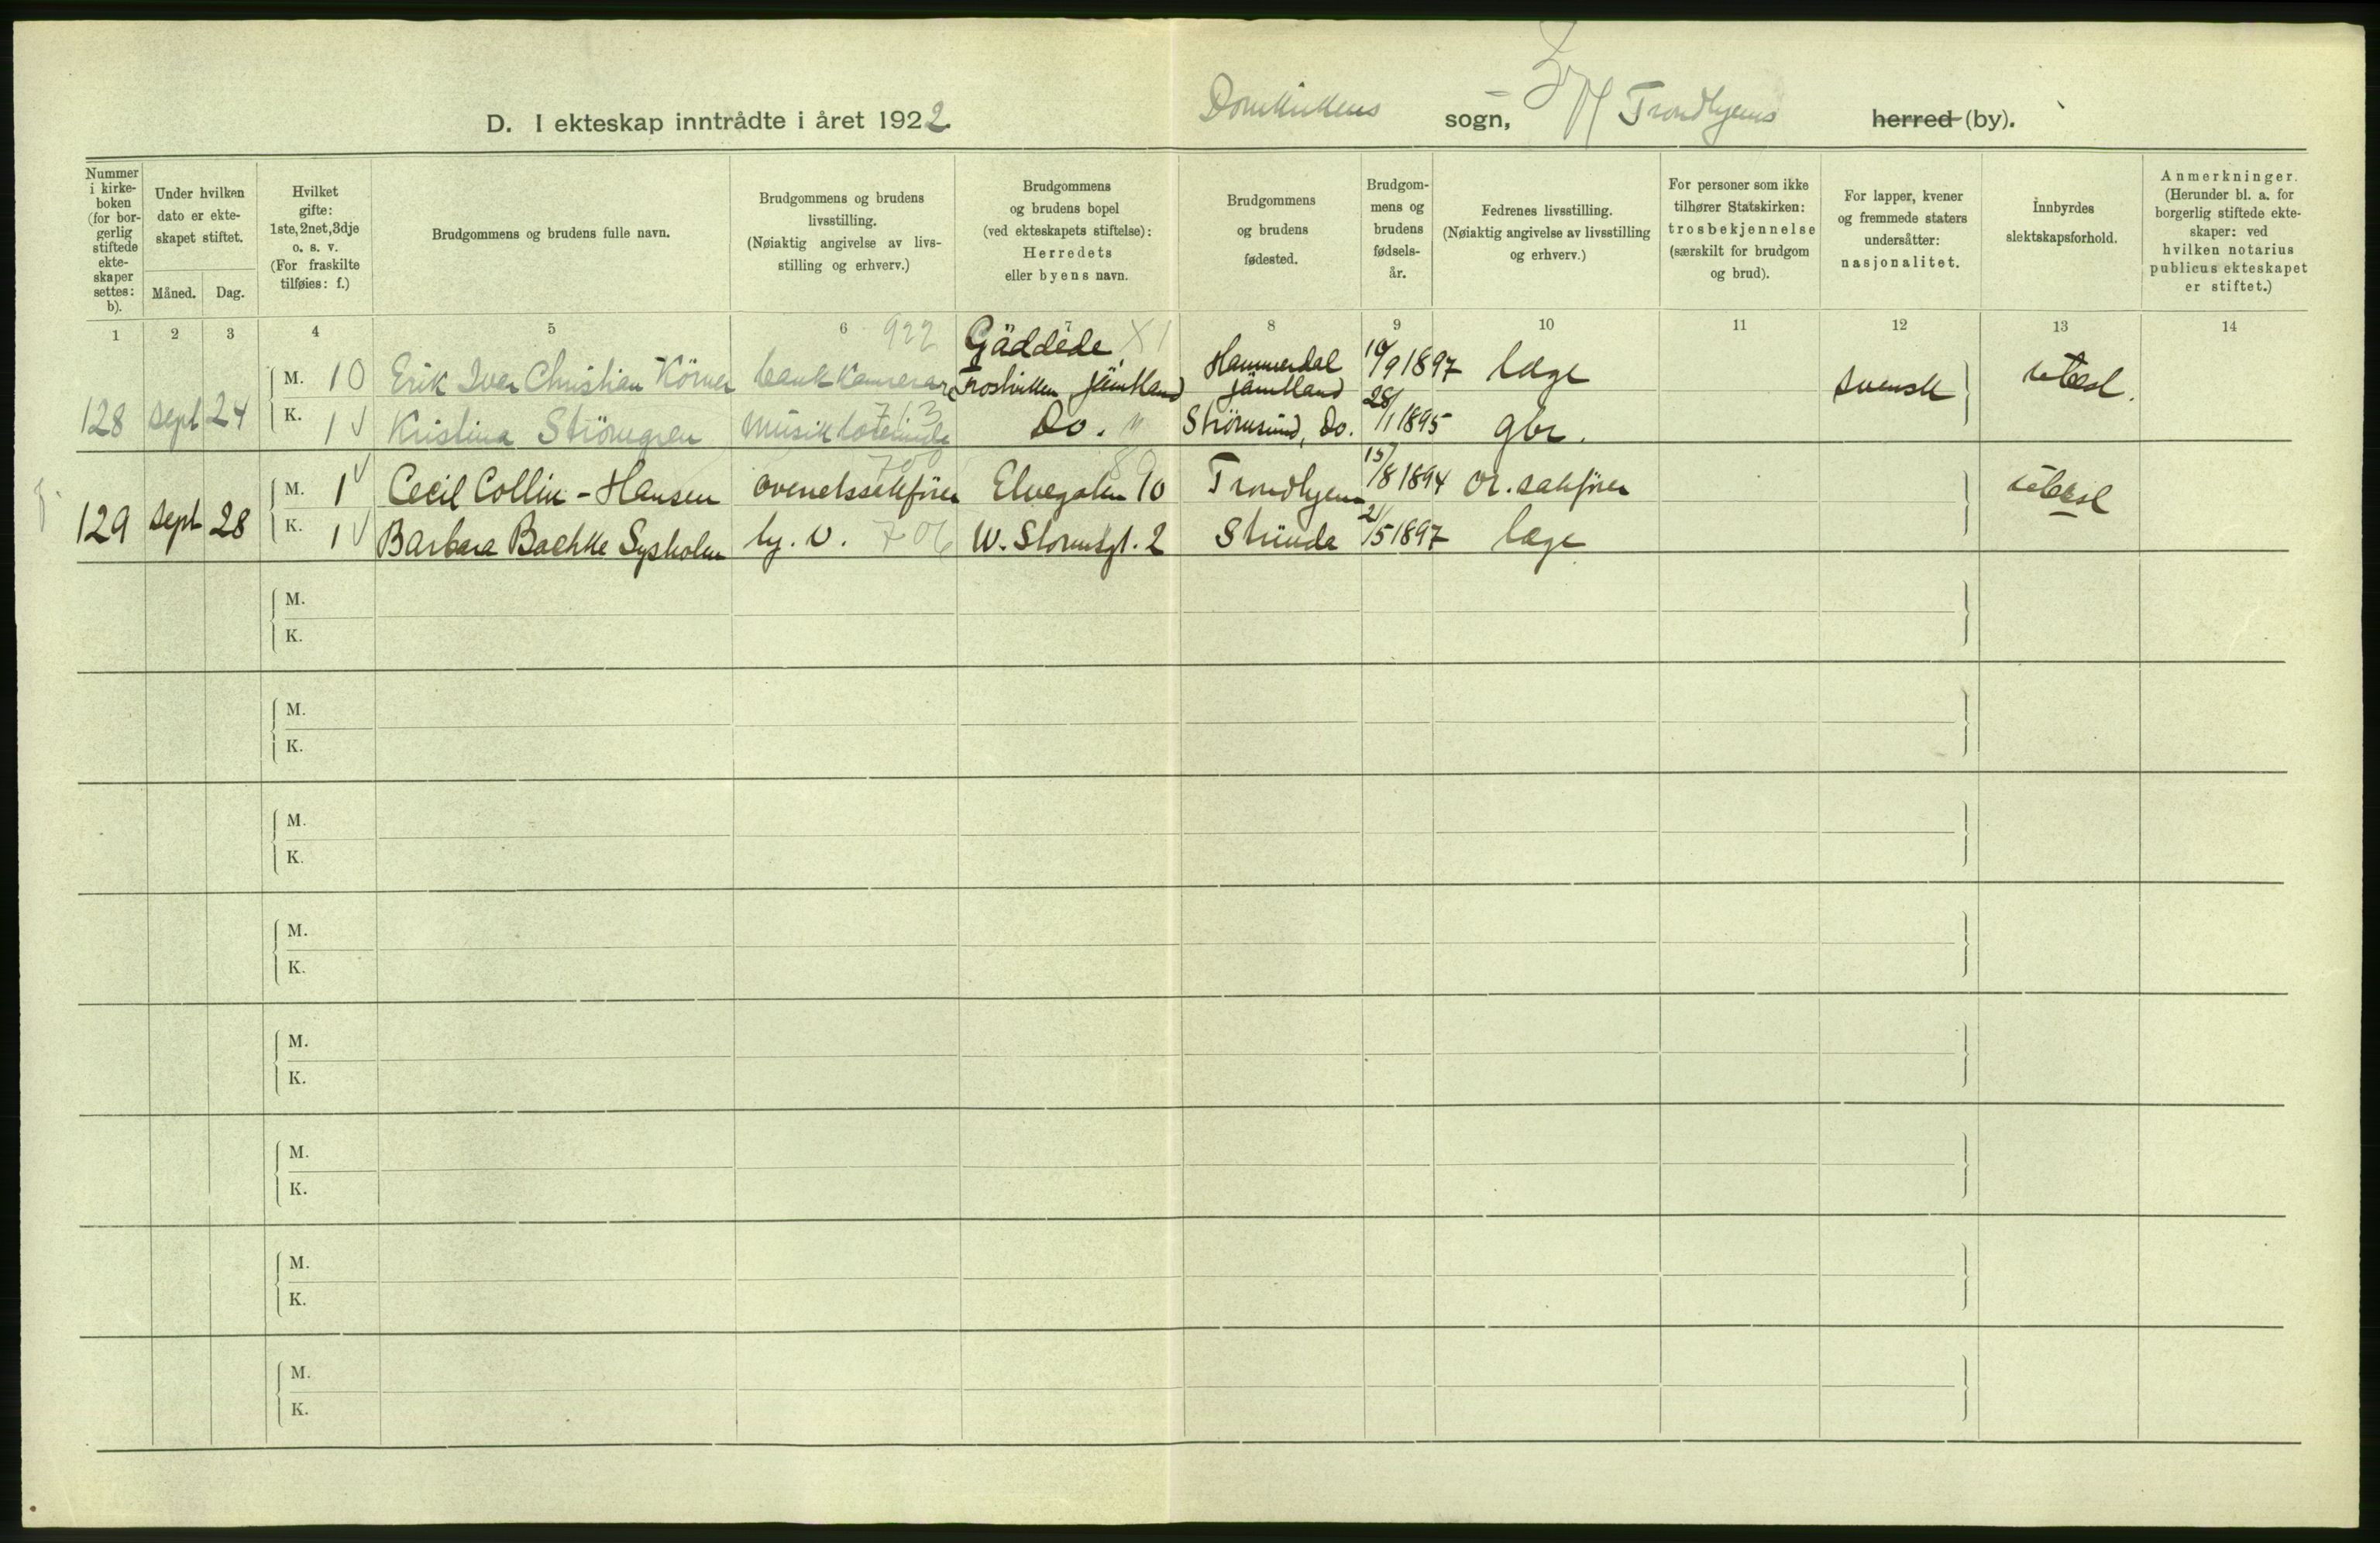 D. I ekteskap inntrådte i året 1922. Domkirkens sogn, Trondhjems herred (by).
Nummer i kirke-boken (for bor-gerlig stiftede ekte-skaper settes: b).
Under hvilken dato er ekte-skapet stiftet.
Måned. Dag.
Hvilket gifte: 1ste, 2net, 3dje o. s. v. (For fraskilte tilføies: f.)
Brudgommens og brudens fulle navn.
Brudgommens og brudens livsstilling. (Nøiaktig angivelse av livs-stilling og erhverv.)
Brudgommens og brudens bopel (ved ekteskapets stiftelse): Herredets eller byens navn.
Brudgommens og brudens fødested.
Brudgom-mens og brudens fødsels-år.
Fedrenes livsstilling. (Nøiaktig angivelse av livsstilling og erhverv.)
For personer som ikke tilhører Statskirken: trosbekjennelse (særskilt for brudgom og brud).
For lapper, kvener og fremmede staters undersåtter: nasjonalitet.
Innbyrdes slektskapsforhold.
Anmerkninger. (Herunder bl. a. for borgerlig stiftede ekte-skaper: ved hvilken notarius publicus ekteskapet er stiftet.)
1 2 3 4 5 6 7 8 9 10 11 12 13 14
922 Gäddede X1
M. 10 Erik Iver Christian Körner bank kamerar Frostviken, Jämtland Hammerdal Jämtland 10/9 1897 læge svensk ubesl.
128 sept 24 K. 1 Kristina Strömgren musiklærerinde 713 Do. Strömsund, Do. 28/1 1895 gbr.
M. 1 Cecil Collin-Hansen overretssakfører 700 Elvegaten 10 Trondhjem 15/8 1894 or. sakfører ubesl
129 sept 28 K. 1 Barbara Bachke Sysholm hj. v. 706 W. Stormsgt. 2 Strinda 21/5 1897 læge
M.
K.
M.
K.
M.
K.
M.
K.
M.
K.
M.
K.
M.
K.
M.
K.